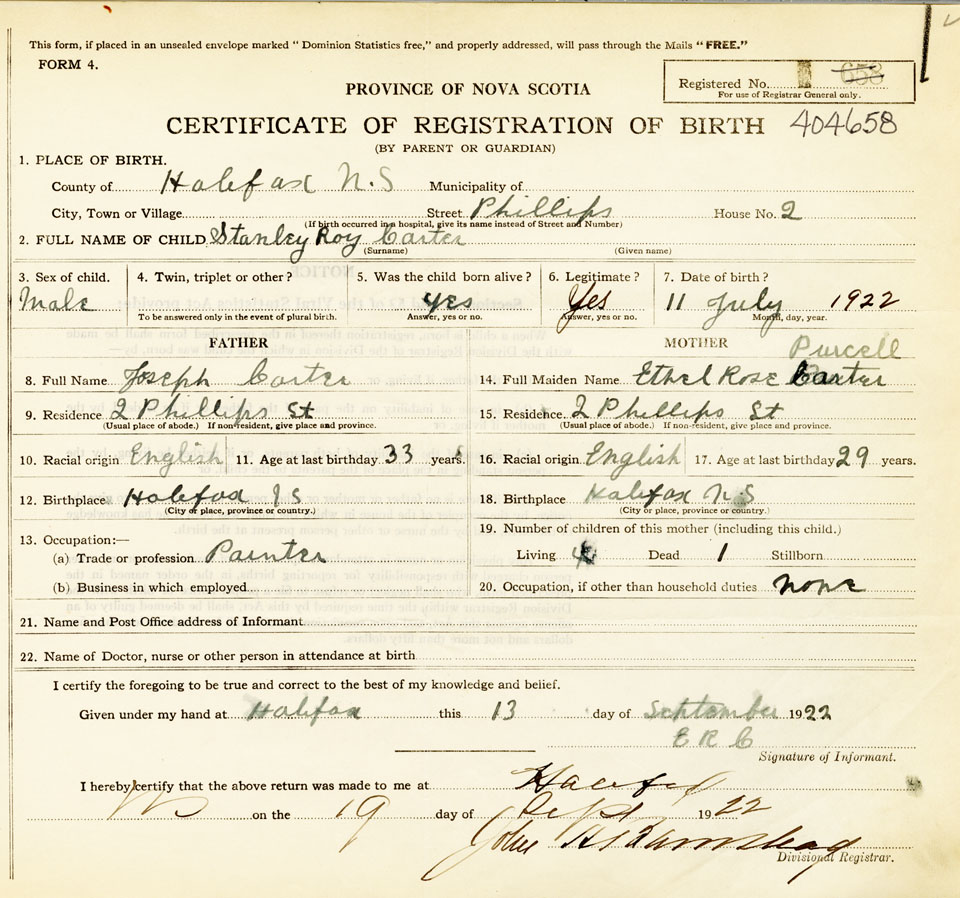 This form, if placed in an unsealed envelope marked "Dominion Statistics free," and properly addressed, will pass through the Mails "FREE."
FORM 4.
Registered No. 658
For use of Registrar General only.
PROVINCE OF NOVA SCOTIA
CERTIFICATE OF REGISTRATION OF BIRTH 404658
(BY PARENT OR GUARDIAN)
1. PLACE OF BIRTH.
County of Halifax N.S Municipality of
City, Town or Village Street Phillips House No. 2
(If birth occurred in a hospital, give its name instead of Street and Number)
2. FULL NAME OF CHILD Stanley Roy Carter
(Surname) (Given name)
3. Sex of child. 4. Twin, triplet or other? 5. Was the child born alive? 6. Legitimate? 7. Date of birth?
Male yes Yes 11 July 1922
To be answered only in the event of plural birth. Answer, yes or no. Answer, yes or no. Month, day, year.
FATHER MOTHER Purcell
8. Full Name Joseph Carter 14. Full Maiden Name Ethel Rose Carter
9. Residence 2 Phillips St 15. Residence. 2 Phillips St
(Usual place of abode.) If non-resident, give place and province. (Usual place of abode.) If non-resident, give place and province.
10. Racial origin English 11. Age at last birthday 33 years. 16. Racial origin English 17. Age at last birthday 29 years.
12. Birthplace Halifax N S 18. Birthplace Halifax N.S
(City or place, province or country.) (City or place, province or country.)
19. Number of children of this mother (including this child.)
13. Occupation:—
(a) Trade or profession Painter Living 4 Dead 1 Stillborn
(b) Business in which employed 20. Occupation, if other than household duties none
21. Name and Post Office address of Informant
22. Name of Doctor, nurse or other person in attendance at birth
I certify the foregoing to be true and correct to the best of my knowledge and belief.
Given under my hand at Halifax this 13 day of September 1922
E R C
Signature of Informant.
I hereby certify that the above return was made to me at Halifax
on the 19 day of Sept 1922
John A
Divisional Registrar.